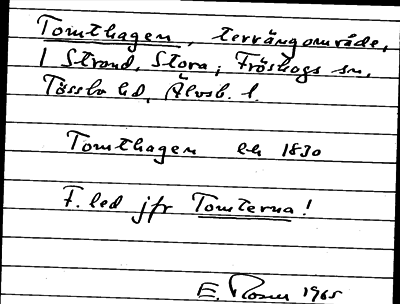 Tomthagen, terrängområde,
1 Strand, Stora; Fröskogs sn.
Tössbo hd, Älvsb. l.
Tomthagen lh 1830
F. led jfr Tomterna!
E. Rosur 1965